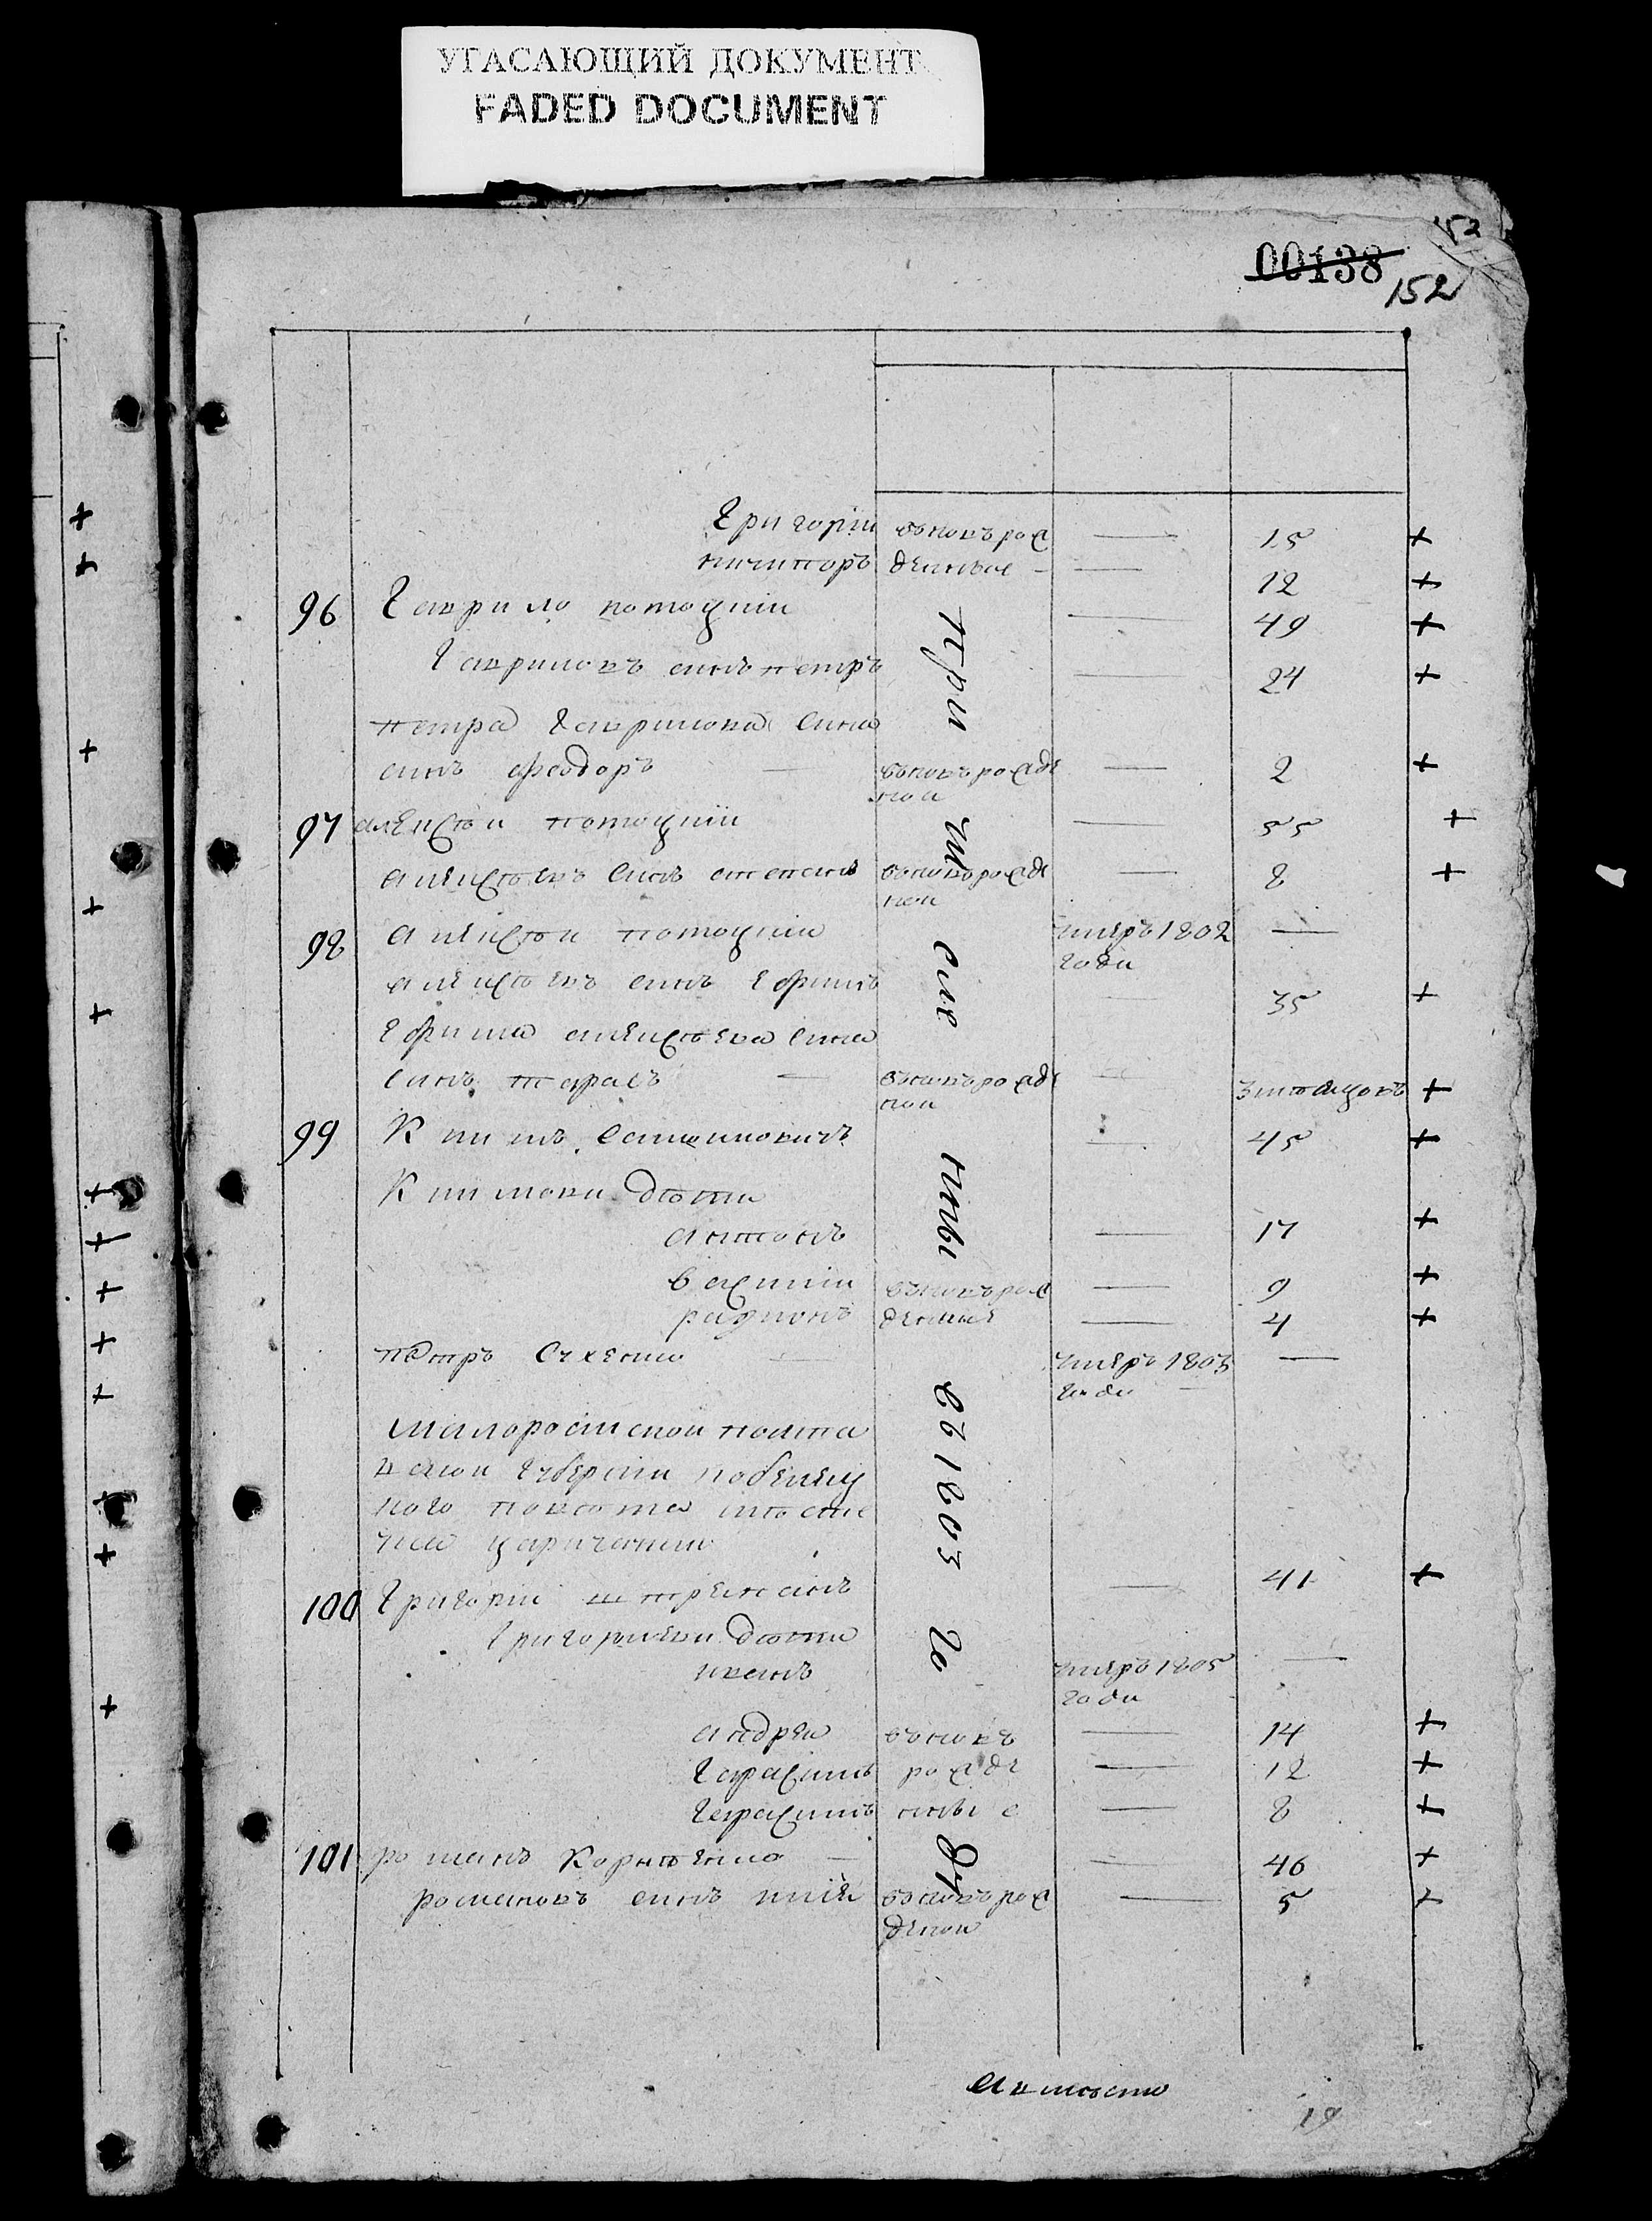 УГАСАЮЩИЙ ДОКУМЕНТ
FADED DOCUMENT
152
00138
152
Григорiи вновьрож — 15 +
ничипоръ денные — — 12 +
96 Гаврило потоцкiи — 49 +
Гавриловъ синъ петръ — 24 +
петра Гаврилова сина
синъ феодоръ — вновьрожде — 2 +
ной
97 алексѣи потоцкiи — 55 +
алексѣевъ синъ степанъ вновьрожде — 8 +
ной
98 алексѣи потоцкiи умеръ 1802 —
годи
алексѣевъ синъ Ефимъ — 35 +
Ефима алексѣева сина
синъ тарасъ — вновьрожде — 3 мѣсяцовъ +
ной
99 Климъ — 45 +
Климови дѣти
антонъ — 17 +
василiи вновьрож — 9 +
родионъ денные — 4 +
петръ — умеръ 1803 —
годи —
малоросiиской полта
вской губернiи кобеляц
кого повѣта мѣсте
чка царичанки
100 Григорiи — 41 +
Григориеви дѣти
иванъ умеръ 1805 —
годи
андреи вновь — 14 +
Герасимъ рожде — 12 +
Герасимъ нные — 8 +
101 романъ Корнѣенко — — 46 +
романовъ синъ илiя вновьрож — 5 +
деной
при
чи
сле
нны
въ 1803
го
ду
19